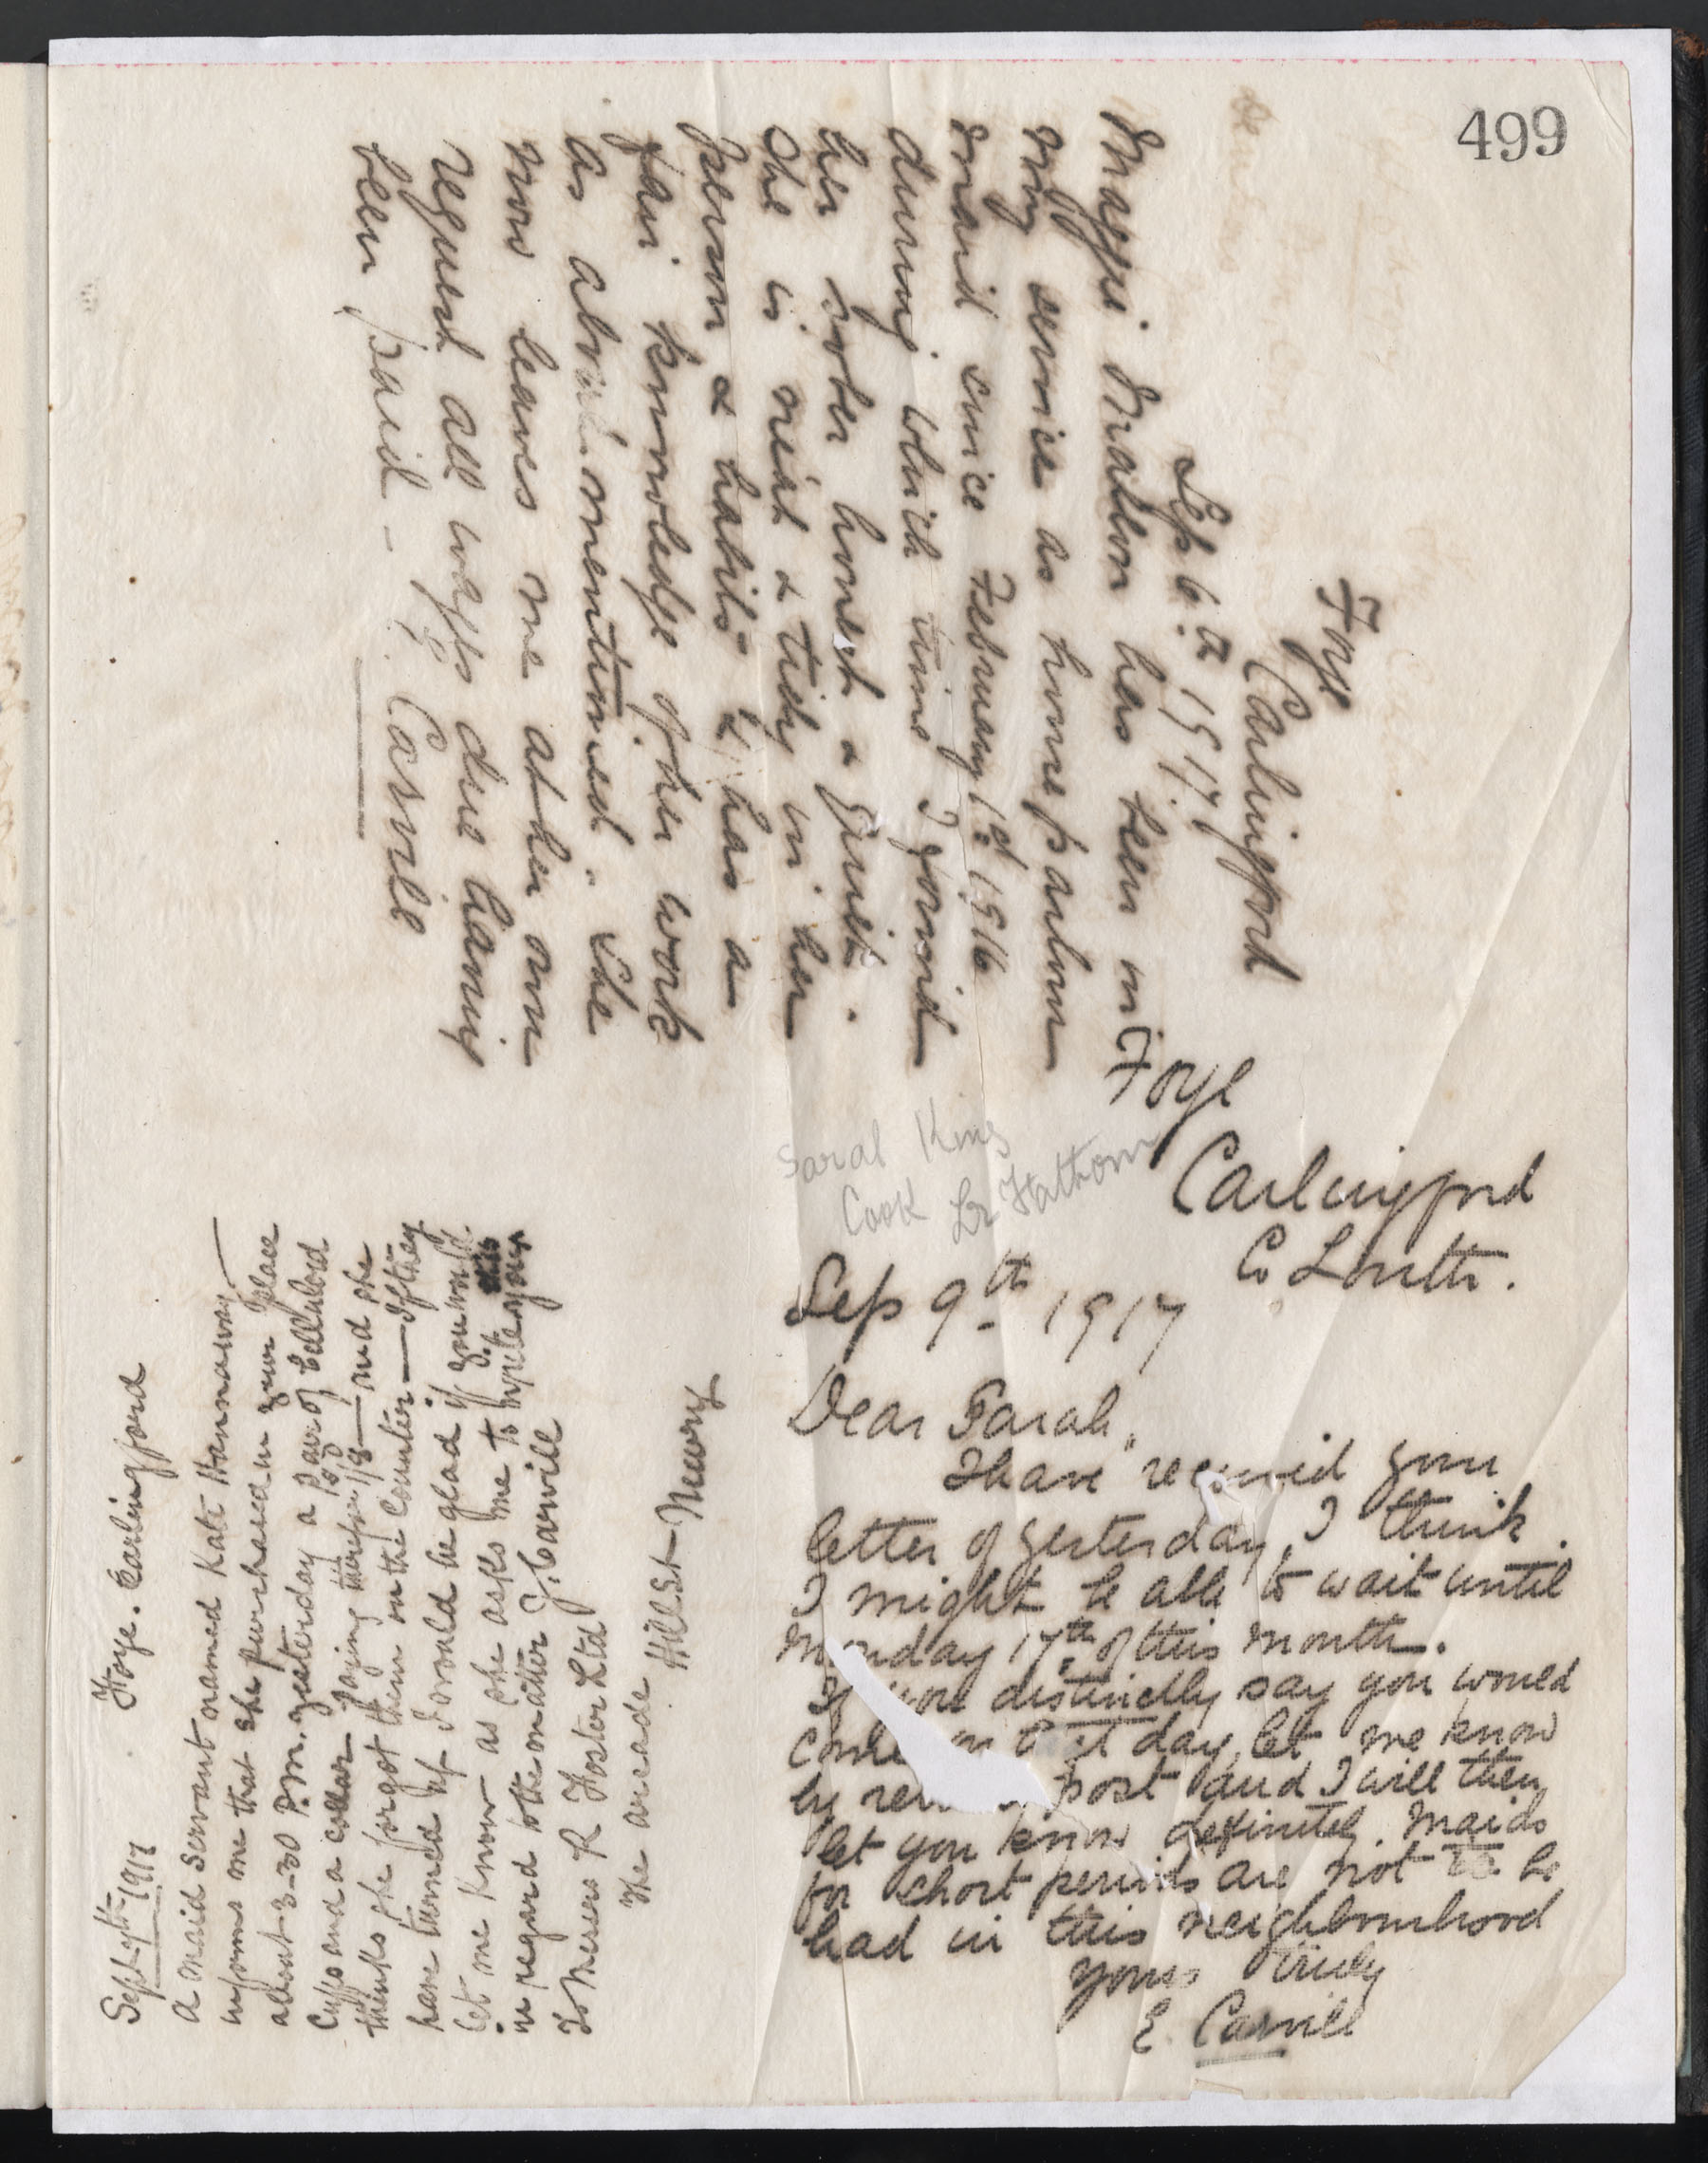 499
Foye
Carlingford
Sep 6th 1917
Maggie Mallon has been in
my service as house parlour
maid since February 1st 1916
during which time I found
her sober honest & quiet.
She is neat & tidy in her
person & habits & has a
fair knowledge of her work
as abovementioned. She
now leaves me at her own
request all wages due having
been paid - E. Carvill
Foye
Carlingford
Co Louth.
Sarah King
Cook
Sep 9th 1917
Dear Sarah,
I have received your
letter of yesterday, I think
I might be able to wait until
Monday 17th of this month.
If you distinctly say you would
come on that day, let me know
by return post and I will then
let you know definitely. Maids
for short periods are not to be
had in this neighbourhood
yours truly
E. Carvill
Foye. Carlingford
Sept 9th 1917
A maid servant named Kate Hannaway
informs me that she purchased in your place
about 3-30 P.M. yesterday a Pair of Celluloid
Cuffs and a collar paying therefor 1/8 and she
thinks she forgot them on the Counter — If they
have turned up I would be glad if you would
let me know as she asks me to write you
in regard to the matter J. Carvill
To Messrs R Foster Ltd
The arcade Hill St Newry